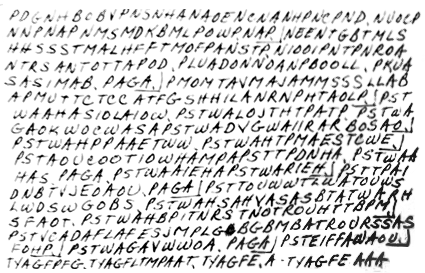 PDGNHBOBVPNSNHANAOENCNANHPNCPND, NUOCP
NNPNAPNMSMDKBMLPOWPNAP, NEENTGBTMLS
HHSSSTMALHFFTMOFPANSTPNIOOIPNTPNROA
NTRSANTOTTAPOD, PLUADONNOANPBOOLL, PKUA
SASIMAB, PAGA, PMOMTAVMAJAMMSSSLLAB
APMUTTCTCCATFGSHHILANRNPHTAOLP, PST
WAAHASIOLAIOW, PSTWALOJTHTPATP, PSTWA
GAOKWOCWASAPSTWADVGWAIIRARBOSAO,
PSTWAHPPAAETWW, PSTWAHTPMAESTCWE,
PSTAOUCOOTIOWHAMPAPSTTPDNHA, PSTWAA
HAS, PAGA, PSTWAAIEHAPSTWARIEH, PSTTPAI
DNBTVJEOAOU, PAGA, PSTTOUWWTLWATOUWS
LWDSWGOBS, PSTWAHSAHVASASBTATWLARH
SFAOT, PSTWAHBPITNRSTNOTROUHTTBPM,
PSTVCADAFLAFESSJMPLGBGBMBATROURSSAS
FOHP, PSTWAGAVWWOA, PAGA, PSTEIFFAWAOU,
TYAGFPFG, TYAGFLTMPAAT, TYAGFE, A. TYAGFEAAA